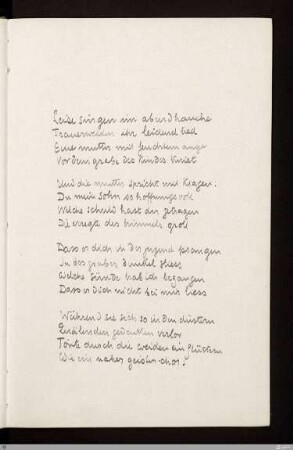 Leise singen im abendhauche
Trauerweiden ihr leidend lied
Eine mutter mit feuchtem auge
Vor dem grabe des kindes kniet
Und die mutter spricht mit klagen:
Du mein sohn so hoffnungsvoll
Welche schuld hast du getragen
Die erregte des himmels groll
Dass er dich in der jugend prangen
In des grabes dunkel stiess
Welche sünde hab ich begangen
Dass er dich nicht bei mir liess
Während sie sich so in den düstern
Quälenden gedanken verlor
Tönt durch die weiden ein flüstern
Wie ein naher geister-chor: